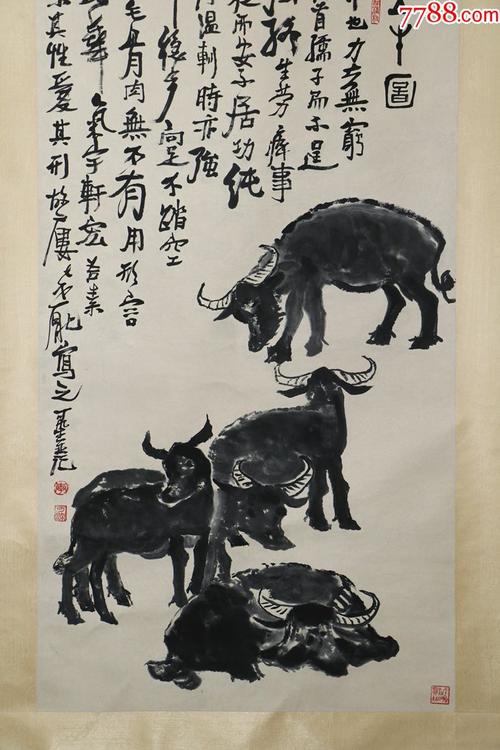 7788.com
牛圖
也力大無窮
首孺子而不逞
終生勞瘁事
而安不居功純
溫馴時亦強
穩步向前足不踏空
毛骨肉無不有用形容
華氣宇軒宏吾素
其性愛其形故屢屢不厭寫之